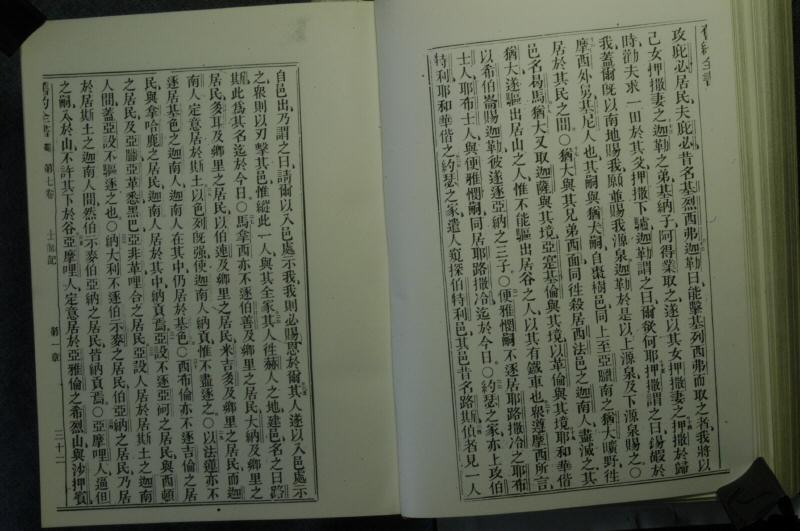 舊約全書
攻庇必居民夫庇必昔名基烈西弗迦勒曰能擊基列西弗而取之者我將以
己女押撒妻之迦勒之弟基納子阿得業取之遂以其女押撒妻之押撒於歸
時勸夫求一田於其父押撒下驢迦勒謂之曰爾欲何耶押撒謂之曰錫嘏於
我蓋爾既以南地賜我願並賜我源泉迦勒於是以上源泉及下源泉賜之○
摩西外舅基尼人也其嗣與猶大嗣自棗樹邑同上至亞臘南之猶大曠野往
居於其民之間○猶大與其兄弟西面同往殺居西法邑之迦南人盡滅之其
邑名曷馬猶大又取迦薩與其境亞實基倫與其境以革倫與其境耶和華偕
猶大遂驅出居山之人惟不能驅出居谷之人以其有鐵車也眾遵摩西所言
以希伯崙賜迦勒彼遂逐亞納之三子○便雅憫嗣不逐居耶路撒冷之耶布
士人耶布士人與便雅憫嗣同居耶路撒冷迄於今日○約瑟之家亦上攻伯
特利耶和華偕之約瑟之家遣人窺探伯特利邑其邑昔名路斯偵者見一人
自邑出乃謂之曰請爾以入邑處示我我則必賜恩於爾其人遂以入邑處示
之眾則以刃擊其邑惟縱此一人與其全家其人往赫人之地建邑名之曰路
斯此為其名迄於今日○馬拿西亦不逐伯善及鄉里之居民大納及鄉里之
居民多耳及鄉里之居民以伯連及鄉里之居民米吉多及鄉里之居民而迦
南人定意居於斯土以色列既強使迦南人納貢惟不盡逐之○以法蓮亦不
逐居基色之迦南人迦南人在其中仍居於基色○西布倫亦不逐吉倫之居
民與拿哈鹿之居民迦南人居於其中納貢焉亞設不逐亞祠之居民與西頓
之居民及亞臘亞革悉黑巴亞非革哩合之居民亞設人居於居斯土之迦南
人間蓋亞設不驅逐之也○納大利不逐伯示麥之居民伯亞納之居民乃居
於居斯土之迦南人間然伯示麥伯亞納之居民昔納貢焉○亞摩哩人逼但
之嗣入於山不許其下於谷亞摩哩人定意居於亞雅倫之希烈山與沙押賓
舊約全書 第七卷 士師記 第一章 三十二